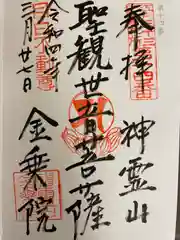 奉拝
神霊山
聖観世音菩薩
金乗院
令和四年
三月廿七日